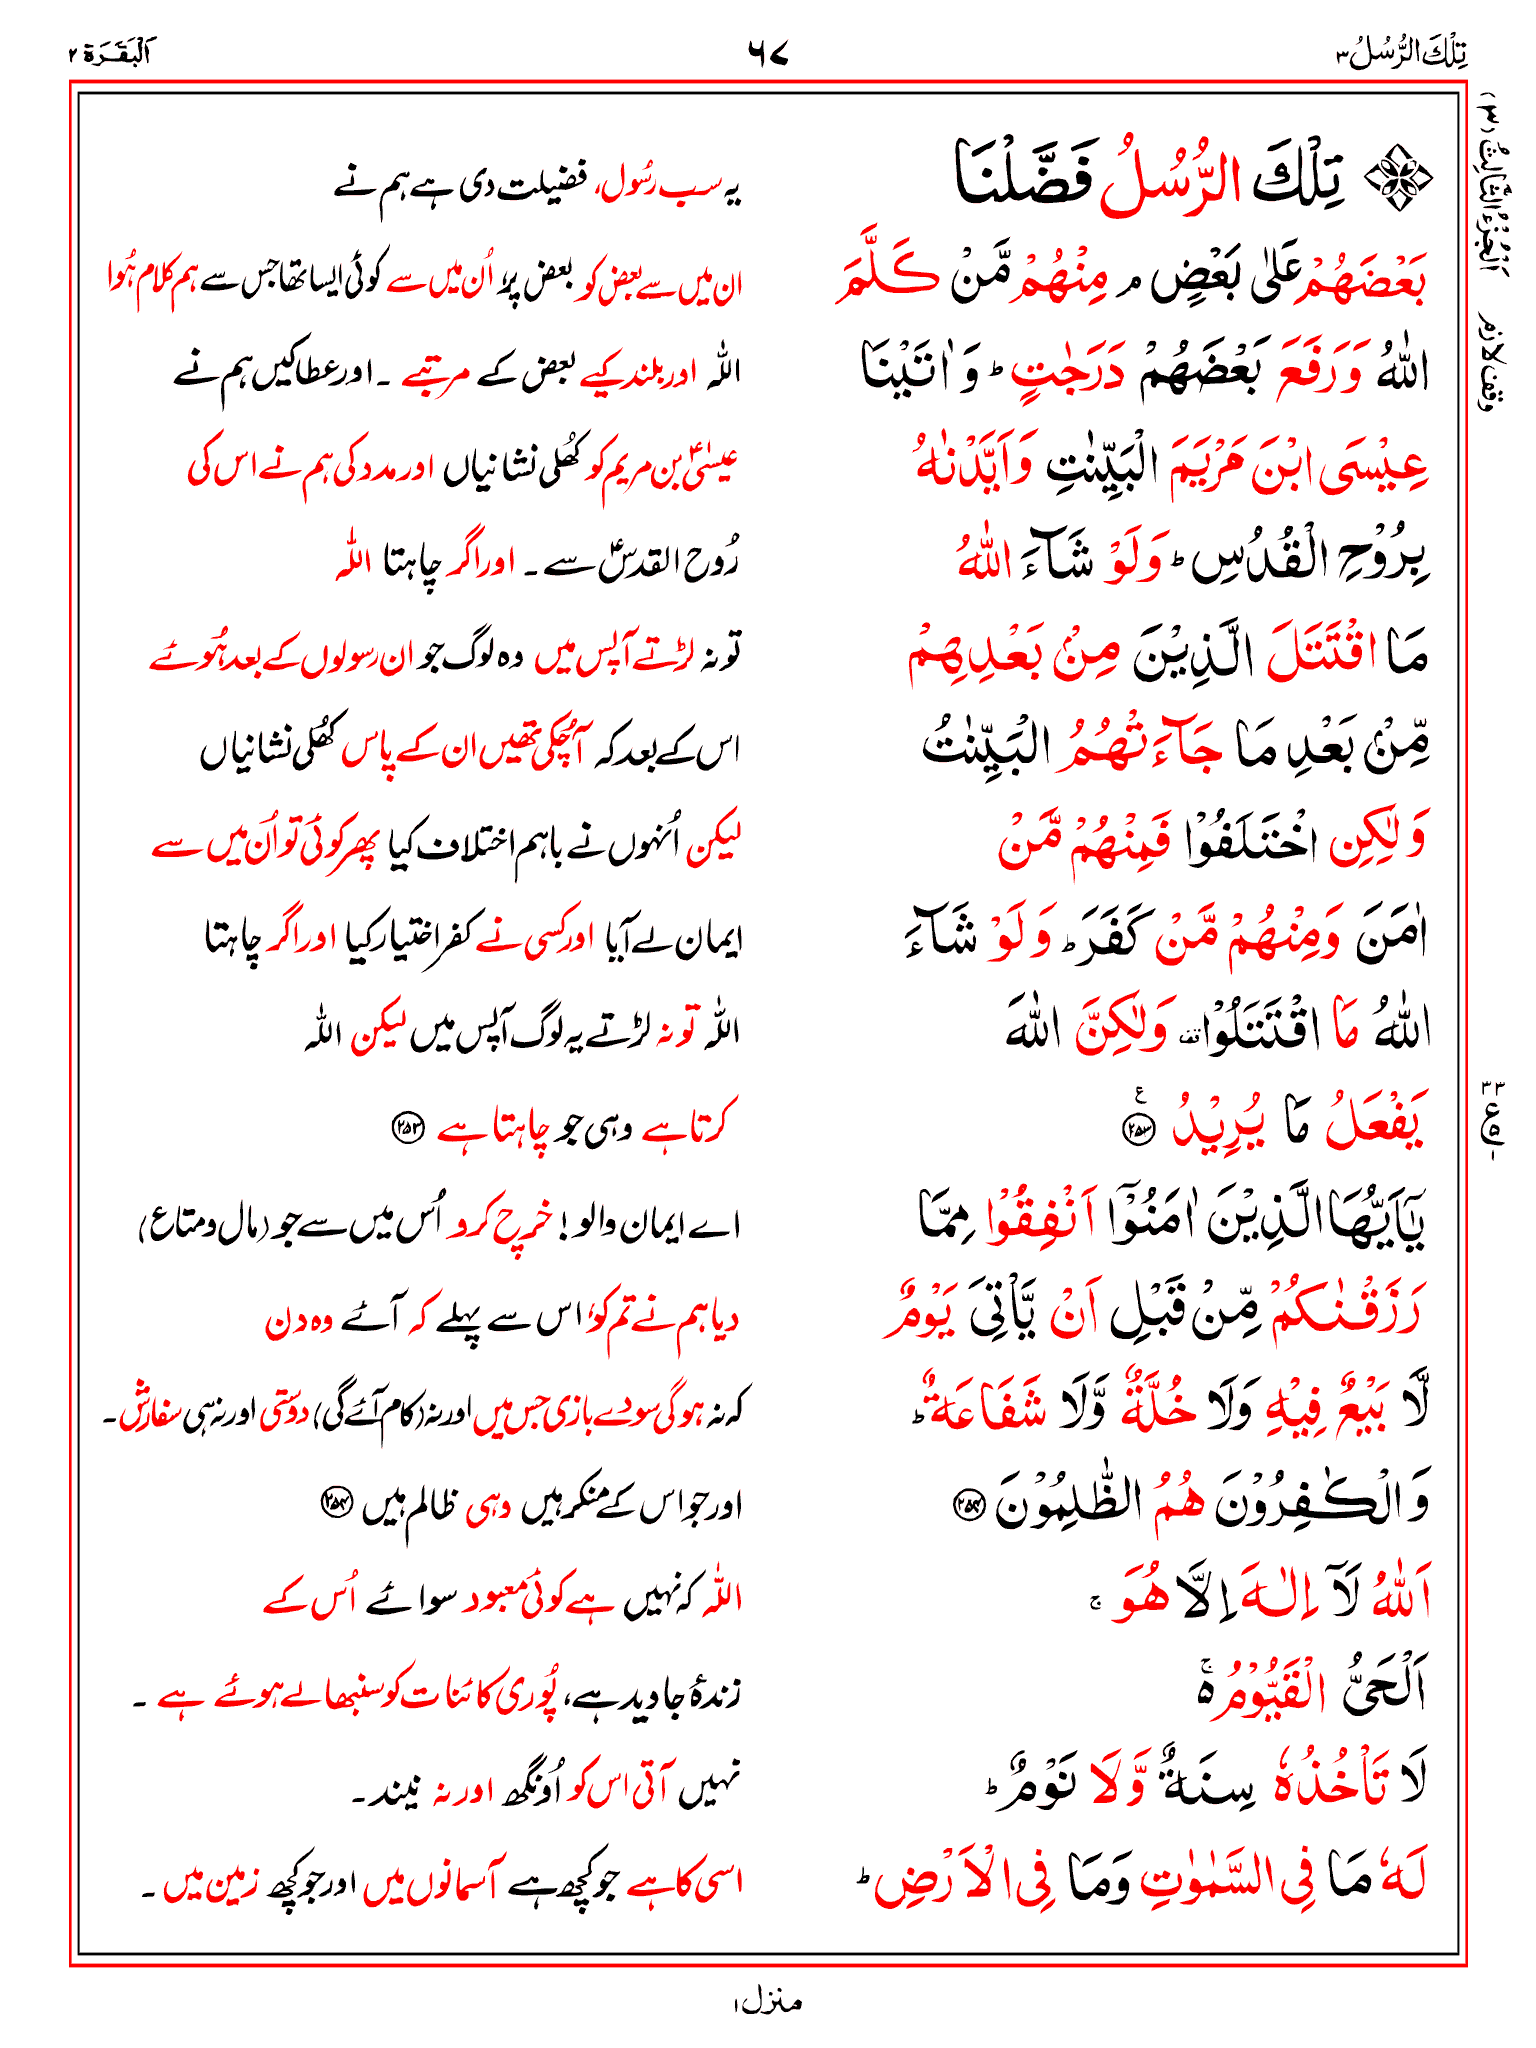 تِلْكَ الرُّسُلُ ٣
٦٧
اَلْبَقَرَة ٢
اَلْجُزْءُ الثَّالِثُ (٣)
وقف لازم
تِلْكَ الرُّسُلُ فَضَّلْنَا یہ سب رسُول، فضیلت دی ہے ہم نے
بَعْضَهُمْ عَلٰى بَعْضٍ ۘ مِنْهُمْ مَّنْ كَلَّمَ ان میں سے بعض کو بعض پر، اُن میں سے کوئی ایسا تھا جس سے ہم کلام ہُوا
اللّٰهُ وَرَفَعَ بَعْضَهُمْ دَرَجٰتٍ ؕ وَ اٰتَيْنَا اللّٰہ اور بلند کیے بعض کے مرتبے ۔ اور عطا کیں ہم نے
عِيْسَى ابْنَ مَرْيَمَ الْبَيِّنٰتِ وَاَيَّدْنٰهُ عیسٰیؑ بن مریم کو کھُلی نشانیاں اور مدد کی ہم نے اس کی
بِرُوْحِ الْقُدُسِ ؕ وَلَوْ شَآءَ اللّٰهُ رُوح القدسؑ سے ۔ اور اگر چاہتا اللّٰہ
مَا اقْتَتَلَ الَّذِيْنَ مِنْۢ بَعْدِهِمْ تو نہ لڑتے آپس میں وہ لوگ جو ان رسولوں کے بعد ہُوئے
مِّنْۢ بَعْدِ مَا جَآءَتْهُمُ الْبَيِّنٰتُ اس کے بعد کہ آچُکی تھیں ان کے پاس کھُلی نشانیاں
وَلٰكِنِ اخْتَلَفُوْا فَمِنْهُمْ مَّنْ لیکن اُنہوں نے باہم اختلاف کیا پھر کوئی تو اُن میں سے
اٰمَنَ وَمِنْهُمْ مَّنْ كَفَرَ ؕ وَلَوْ شَآءَ ایمان لے آیا اور کسی نے کفر اختیار کیا اور اگر چاہتا
اللّٰهُ مَا اقْتَتَلُوْا ۫ وَلٰكِنَّ اللّٰهَ اللّٰہ تو نہ لڑتے یہ لوگ آپس میں لیکن اللّٰہ
يَفْعَلُ مَا يُرِيْدُ ۝٢٥٣ کرتا ہے وہی جو چاہتا ہے ۝٢٥٣
يٰۤاَيُّهَا الَّذِيْنَ اٰمَنُوْۤا اَنْفِقُوْا مِمَّا اے ایمان والو! خرچ کرو اُس میں سے جو (مال و متاع)
رَزَقْنٰكُمْ مِّنْ قَبْلِ اَنْ يَّاْتِيَ يَوْمٌ دیا ہم نے تم کو، اس سے پہلے کہ آئے وہ دن
لَّا بَيْعٌ فِيْهِ وَلَا خُلَّةٌ وَّلَا شَفَاعَةٌ ؕ کہ نہ ہوگی سودے بازی جس میں اور نہ (کام آئے گی) دوستی اور نہ ہی سفارش ۔
وَالْكٰفِرُوْنَ هُمُ الظّٰلِمُوْنَ ۝٢٥٤ اور جو اس کے منکر ہیں وہی ظالم ہیں ۝٢٥٤
اَللّٰهُ لَاۤ اِلٰهَ اِلَّا هُوَ ۚ اللّٰہ کہ نہیں ہے کوئی معبود سوائے اُس کے
اَلْحَيُّ الْقَيُّوْمُ ۚ۬ زندۂ جاوید ہے، پُوری کائنات کو سنبھالے ہوئے ہے ۔
لَا تَاْخُذُهٗ سِنَةٌ وَّلَا نَوْمٌ ؕ نہیں آتی اس کو اُونگھ اور نہ نیند ۔
لَهٗ مَا فِى السَّمٰوٰتِ وَمَا فِى الْاَرْضِ ؕ اسی کا ہے جو کچھ ہے آسمانوں میں اور جو کچھ زمین میں ۔
منزل ۱